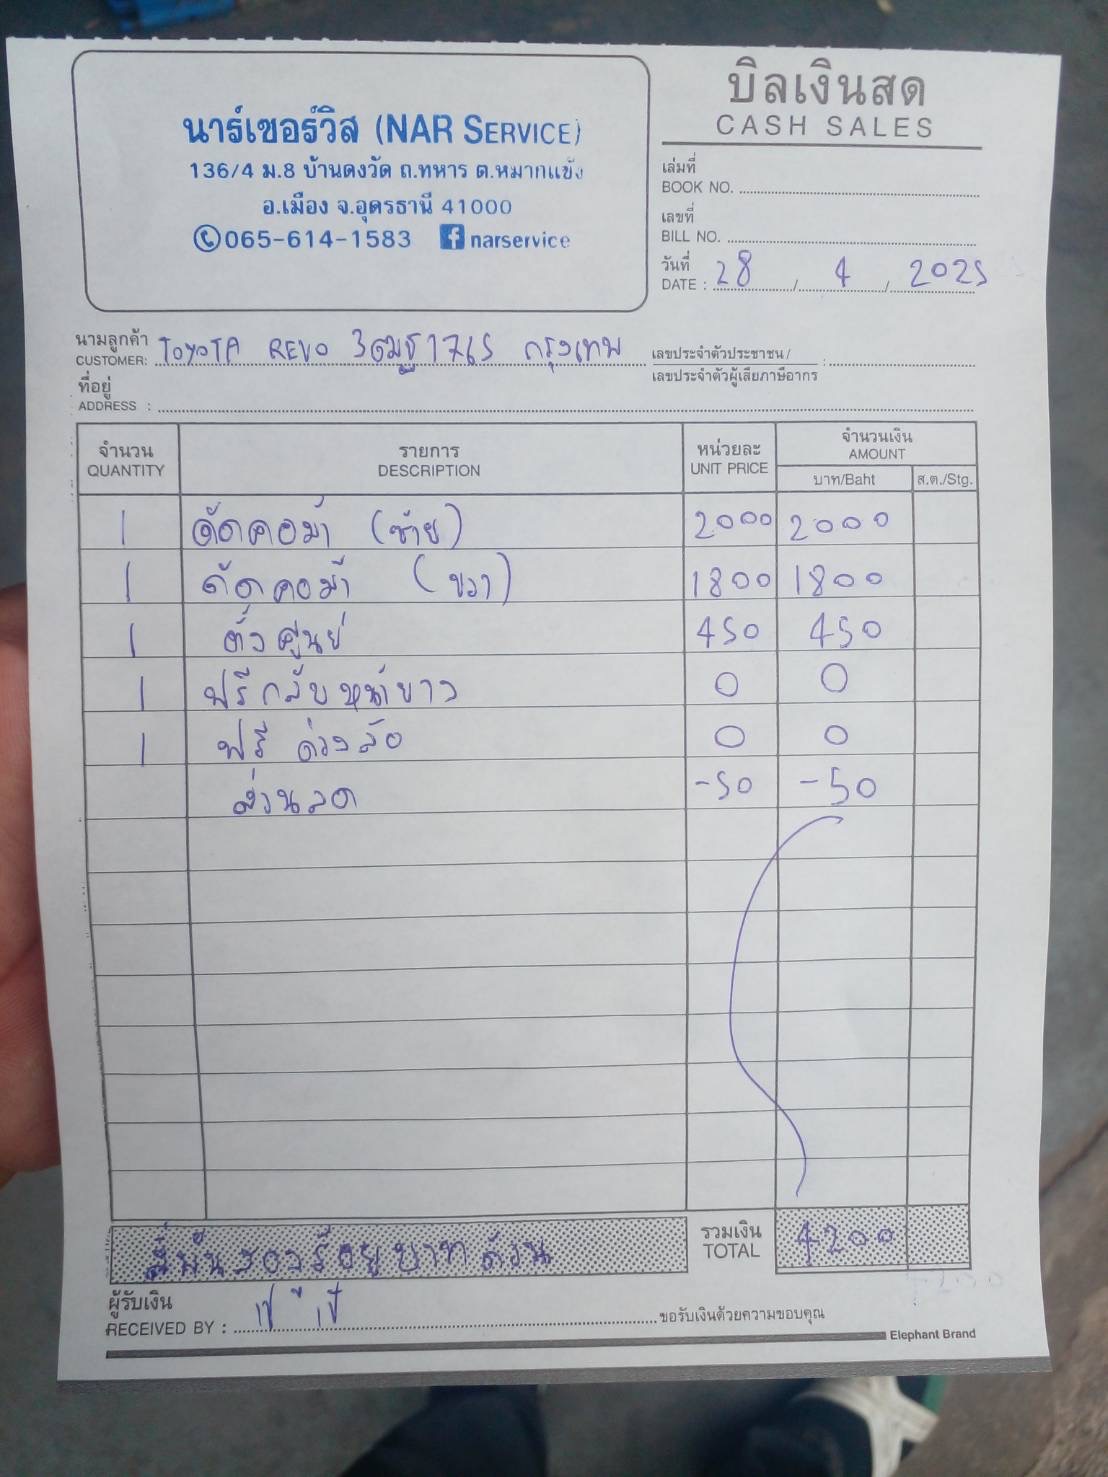 นาร์เซอร์วิส (NAR SERVICE)
136/4 ม.8 บ้านดงวัด ถ.ทหาร ต.หมากแข้ง
อ.เมือง จ.อุดรธานี 41000
065-614-1583 narservice
บิลเงินสด
CASH SALES
เล่มที่
BOOK NO.
เลขที่
BILL NO.
วันที่
DATE : 28 / 4 / 2025
นามลูกค้า
CUSTOMER: TOYOTA REVO 3ฒฐ1765 กรุงเทพ
เลขประจำตัวประชาชน /
เลขประจำตัวผู้เสียภาษีอากร :
ที่อยู่
ADDRESS :
จำนวน รายการ หน่วยละ จำนวนเงิน
QUANTITY DESCRIPTION UNIT PRICE AMOUNT
บาท/Baht ส.ต./Stg.
1 ดัดคอม้า (ซ้าย) 2000 2000
1 ดัดคอม้า (ขวา) 1800 1800
1 ตั้งศูนย์ 450 450
1 ฟรีกลับหน้ายาง 0 0
1 ฟรี ถ่วงล้อ 0 0
ส่วนลด -50 -50
สี่พันสองร้อยบาทถ้วน รวมเงิน 4200
TOTAL
ผู้รับเงิน
RECEIVED BY : ขอรับเงินด้วยความขอบคุณ
Elephant Brand